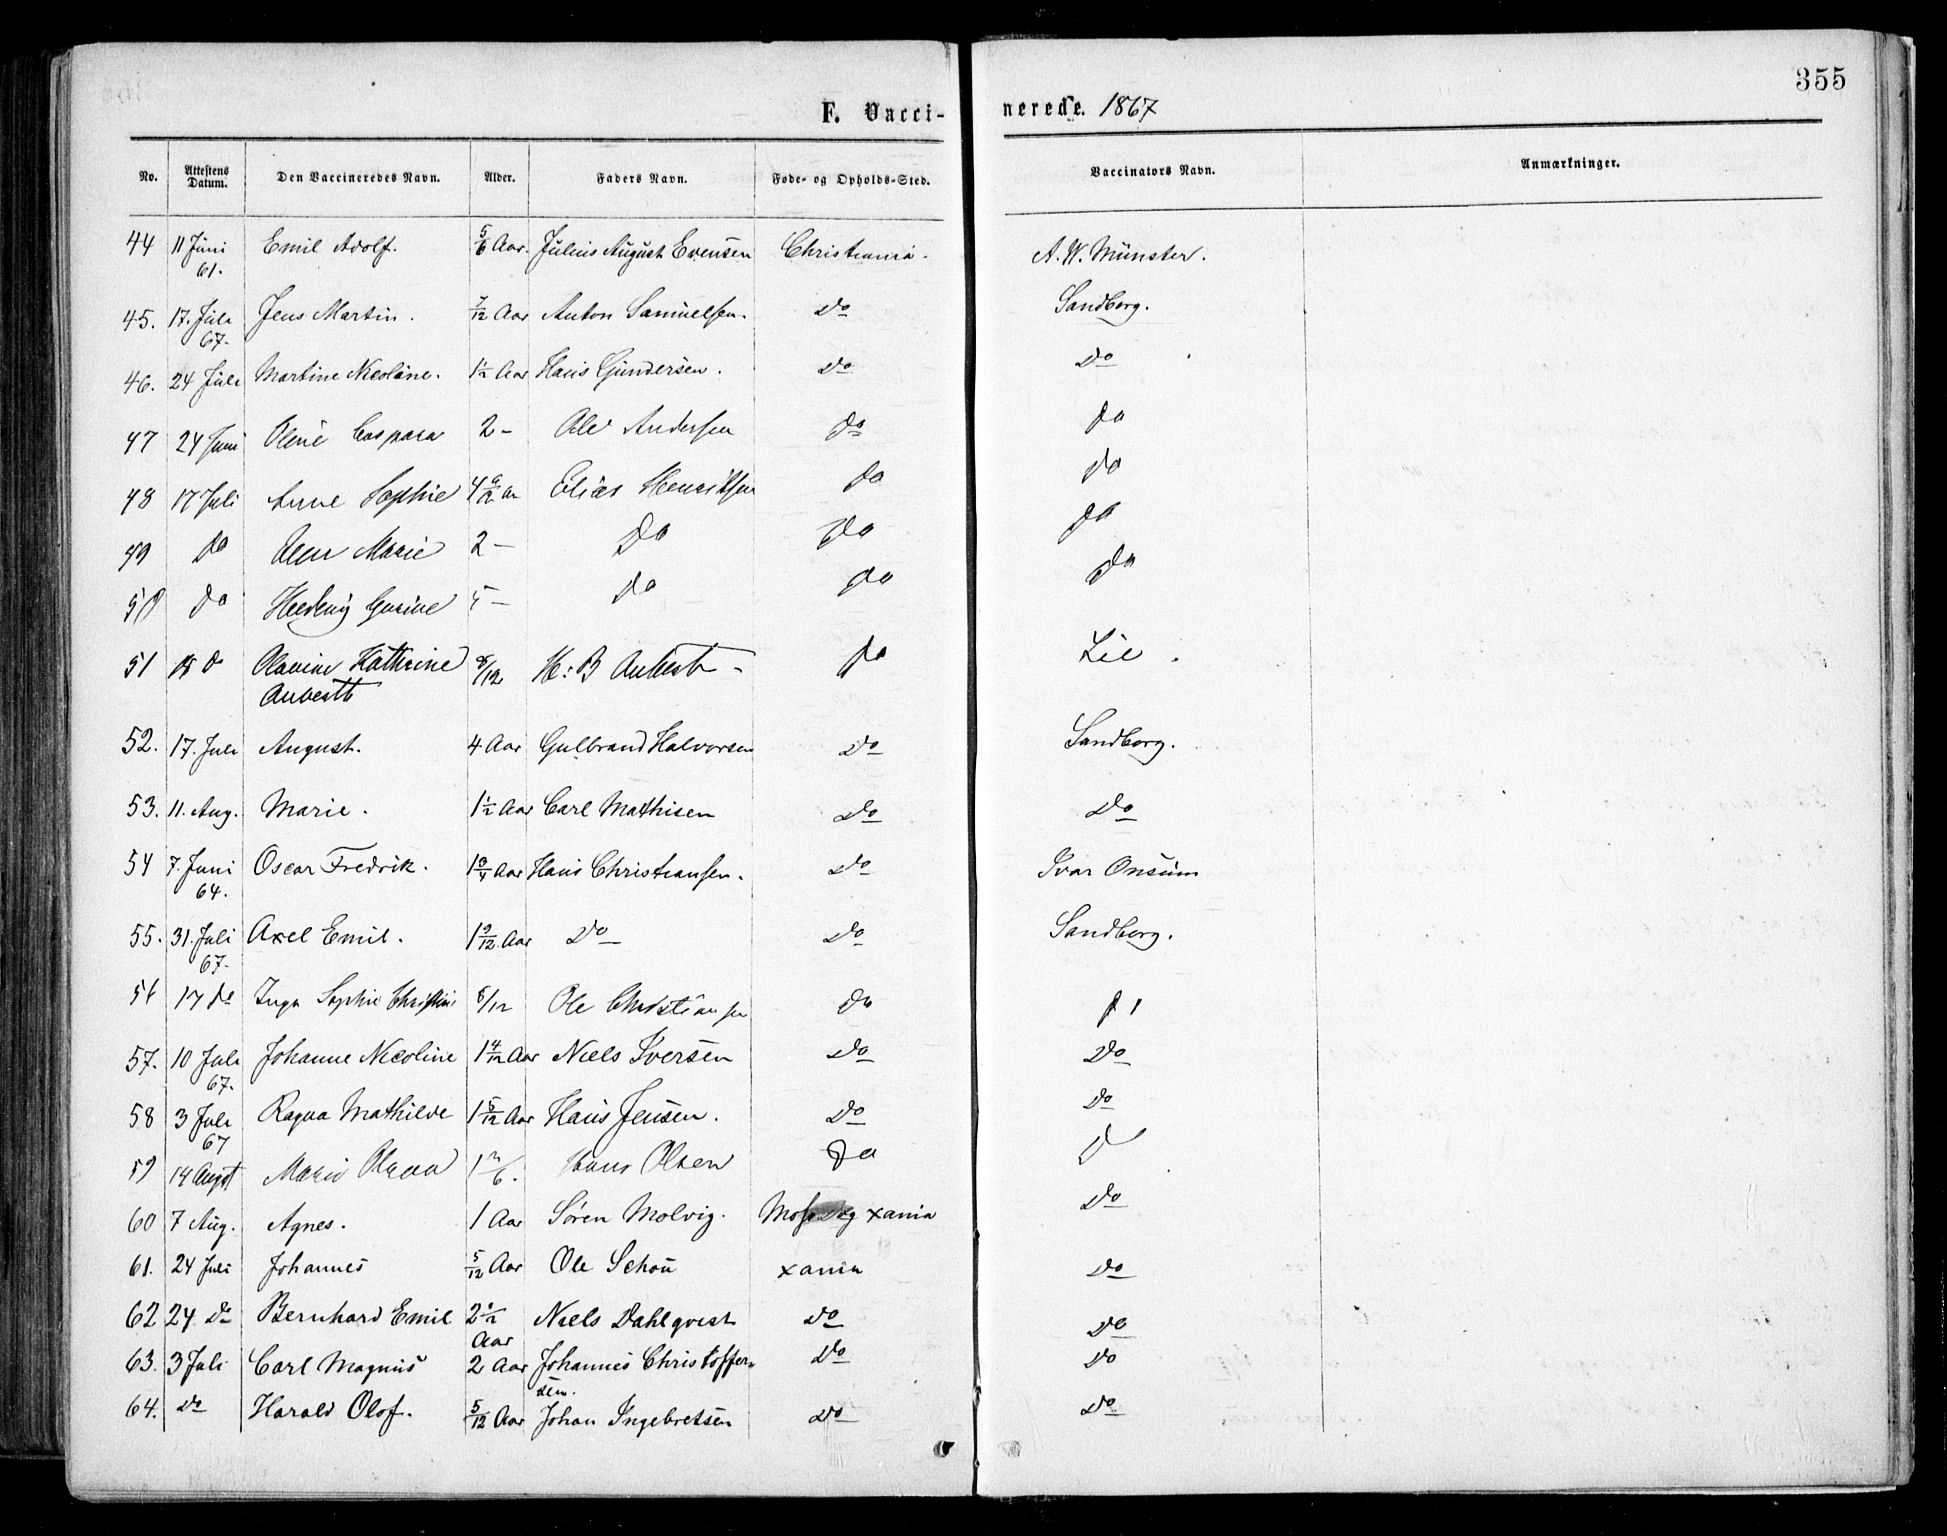 355
F. Vacci- nerede. 1867
No. Attestens Datum. Den Vaccineredes Navn. Alder. Faders Navn. Føde- og Opholds-Sted. Vaccinators Navn. Anmærkninger.
44 11 Juni 61. Emil Adolf. 5/6 Aar. Julius August Evensen Christiania. A. W. Münster.
45. 17. Juli 67. Jens Martin. 7/12 Aar Anton Samuelsen. Do Sandborg.
46. 24 Juli Martine Nicoline. 1½ Aar Hans Gundersen. Do Do
47 24 Juni Oline Caspara 2 - Ole Andersen do do
48 17 Juli Anne Sophie 4 Elias Henriksen do do
49 do Marie 2 - Do Do do
50 do Hedevig 5 - do do do
51 18 do Olavine Kathrine Aubertb 8/12 H: B do Lie.
52. 17. Juli August. 4 Aar Gulbrand Halvorsen Do Sandborg.
53. 11. Aug. Marie. 1½ Aar Carl Mathisen Do Do
54 7. Juni 64. Oscar Fredrik. Aar Hans Christiansen. Do Ivar Onsum
55. 31. Juli 67. Axel Emil. 1 9/12 Aar Do Do Sandborg.
56 17 do Inga Sophie Christine 8/12 Ole Christiansen do
57. 10 Juli 67. Johanne Nicoline 1 4/12 Aar Niels Iversen Do Do
58 3 Juli 67 Ragna Mathilde 1 5/12 Aar Hans Jensen. Do Do
59 14 Augst Marie Hans Olsen Do
60 7 Aug. Agnes. 1 Aar Søren Molvig. Moss og xania Do
61. 24 Juli Johannes 5/12 Aar Ole Schou xania Do
62 24 Do Bernhard Emil 2½ Aar Niels Dahlqvist Do Do
63. 3 Juli Carl Magnus 2 Aar Johannes Christoffersen. Do Do
64. Do Harald Olof. 5/12 Aar Johan Ingebretsen Do Do